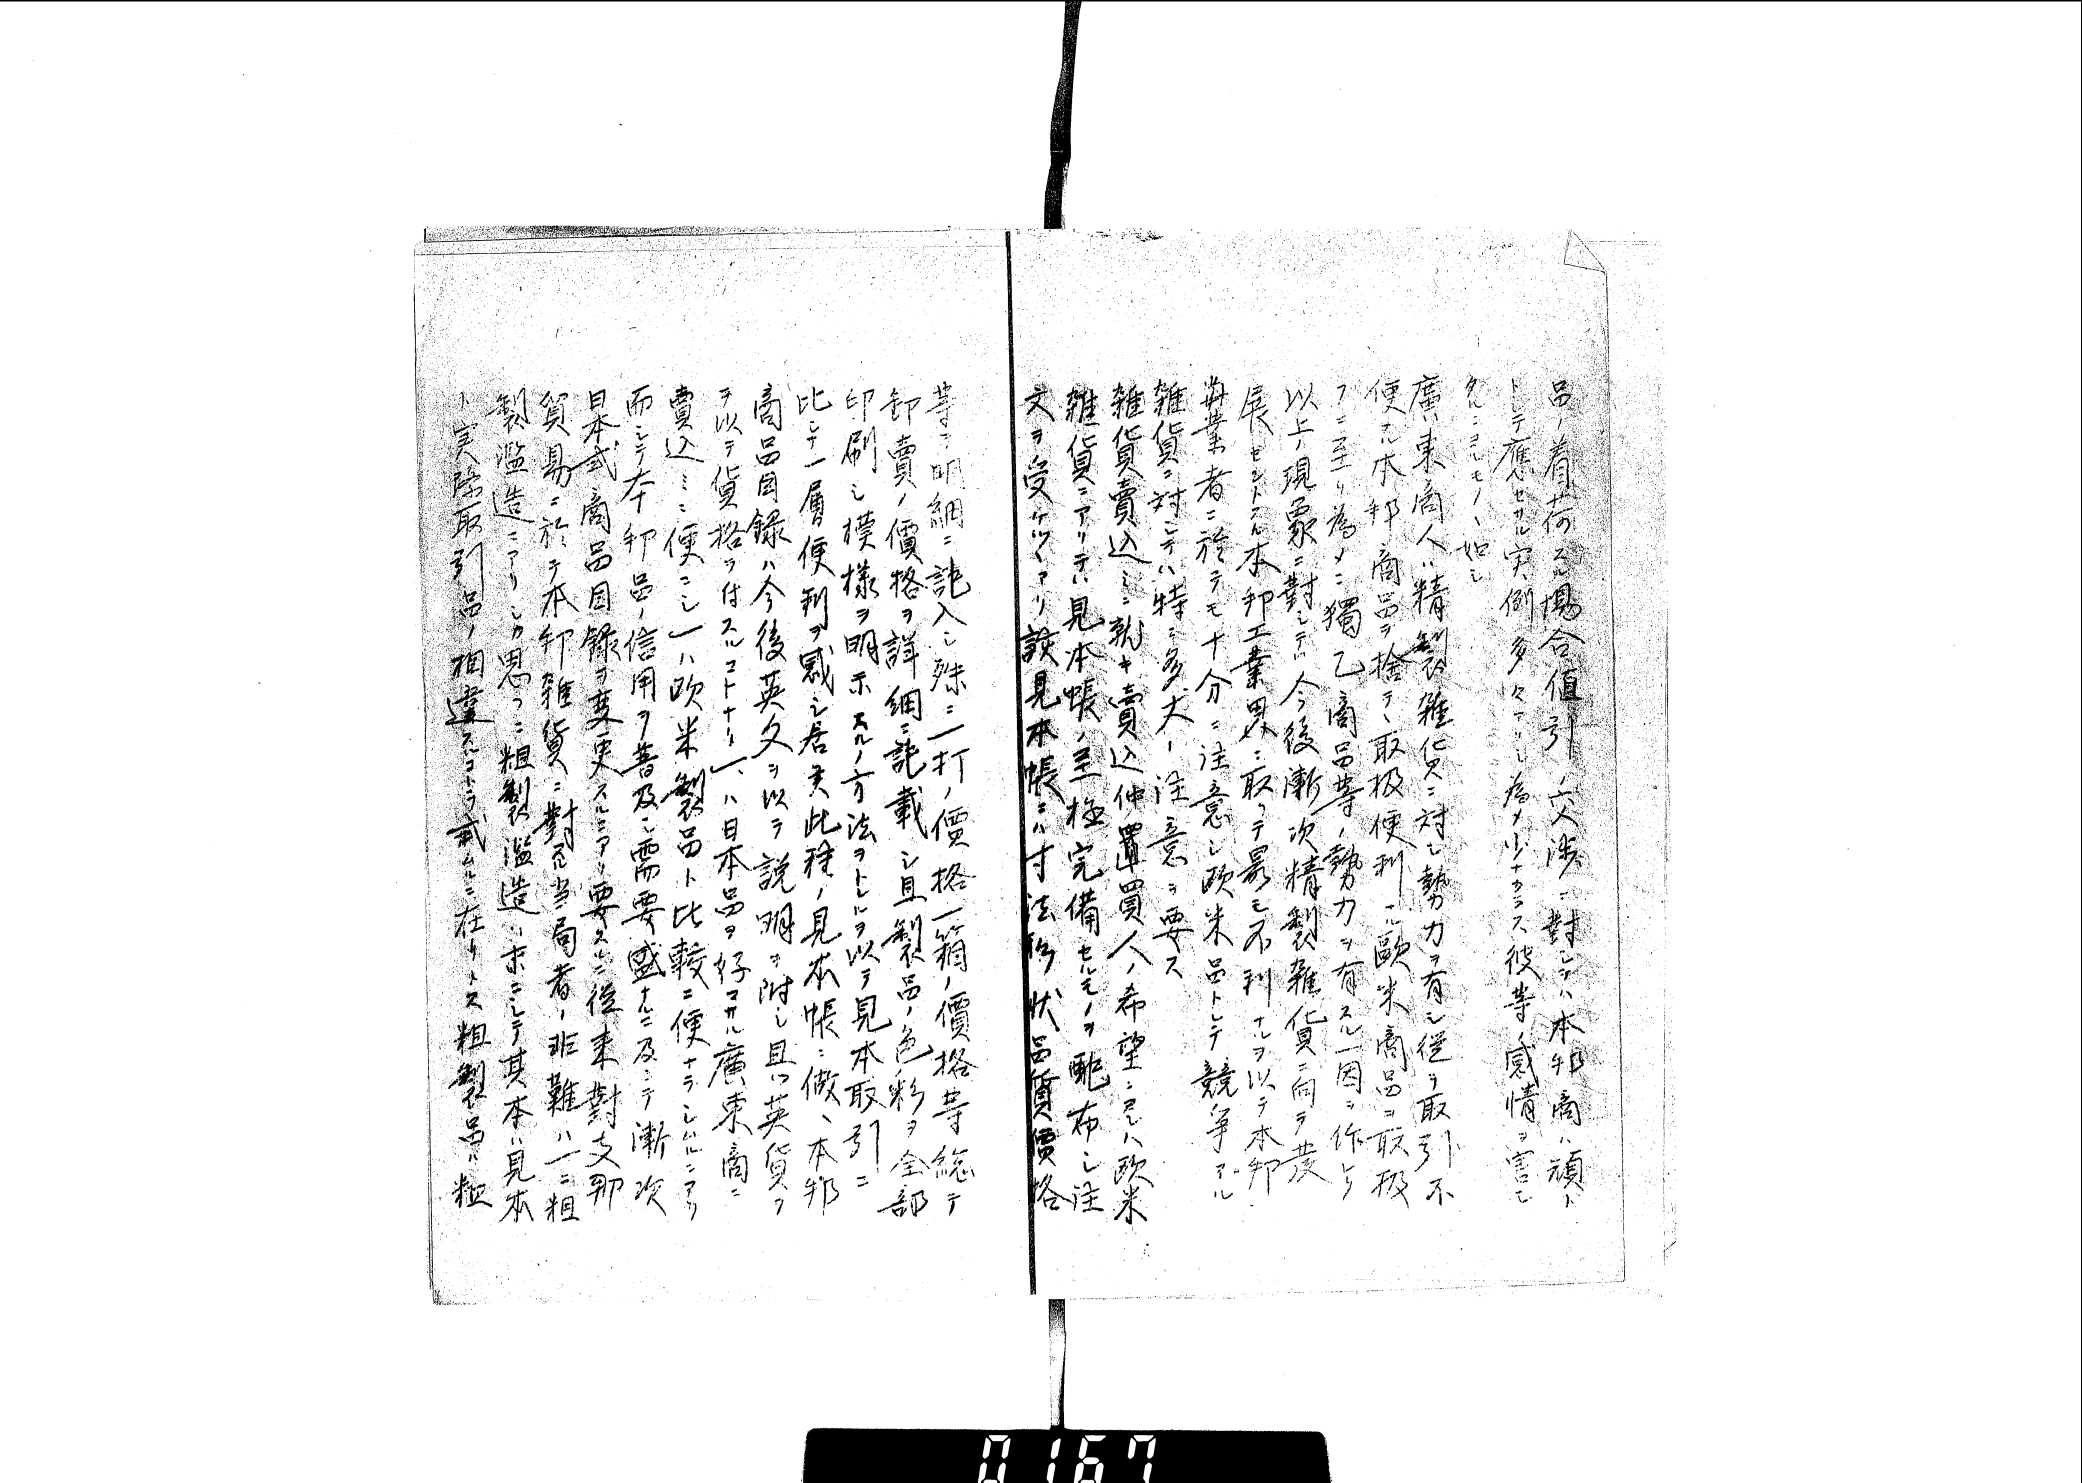 品ノ着荷スル場合値引ノ交渉ニ對シテハ本邦商ハ頑ト
トシテ應セサル実例多々アリシ為メ少ナカラス彼等ノ感情ヲ害シ
タルニヨルモノヽ如シ
廣東商人ハ精製雑貨ニ対シ勢力ヲ有シ從ツ取引不
便ナル本邦商品ヲ捨テ、取扱便利ナル歐米商品ヲ取扱
フニ至リ為メニ獨乙商品等ノ勢力ヲ有スル一因ヲ作レリ
以上ノ現象ニ對シテハ今後漸次精製雑貨ニ向テ發
展セントスル本邦工業界ニ取ツテ最モ不利ナルヲ以テ本邦
当業者ニ於テモ十分ニ注意シ欧米品トシテ競争アル
雑貨ニ対シテハ特ニ多大ノ注意ヲ要ス
雑貨賣込ミニ就キ賣込仲買人ノ希望ニヨレハ欧米
雑貨ニアリテハ見本帳ノ至極完備セルモノヲ配布シ注
文ヲ受ケツヽアリ該見本帳ニハ寸法形状品質價格
等ヲ明細ニ記入シ殊ニ一打ノ價格一箱ノ價格等総テ
卸賣ノ價格ヲ詳細ニ記載シ且製品ノ色彩ヲ全部
印刷シ模様ヲ明示スルノ方法ヲトレルヲ以テ見本取引ニ
比シテ一層便利ヲ感シ居レ此種ノ見本帳ニ倣ヒ本邦
商品目録ハ今後英文ヲ以テ説明ヲ附シ且ツ英貨ヲ
ヲ以テ貨格ヲ付スルコトナリ一、ハ日本品ヲ好マサル廣東商ニ
賣込ミニ便ニシ一ハ欧米製品ト比較ニ便ナラシムルニアリ
而シテ本邦品ノ信用ヲ普及シ需要盛ナルニ及ンテ漸次
日本式商品目録ヲ変更スルニアリ要スルニ從来對支那
貿易ニ於テ本邦雑貨ニ對スル当局者ノ非難ハ一ニ粗
製濫造ニアリシカ思フニ粗製濫造ハ末ニシテ其本ハ見本
ト実際取引品ノ相違スルコトヲ戒ムルニ在リトス粗製品ハ粗